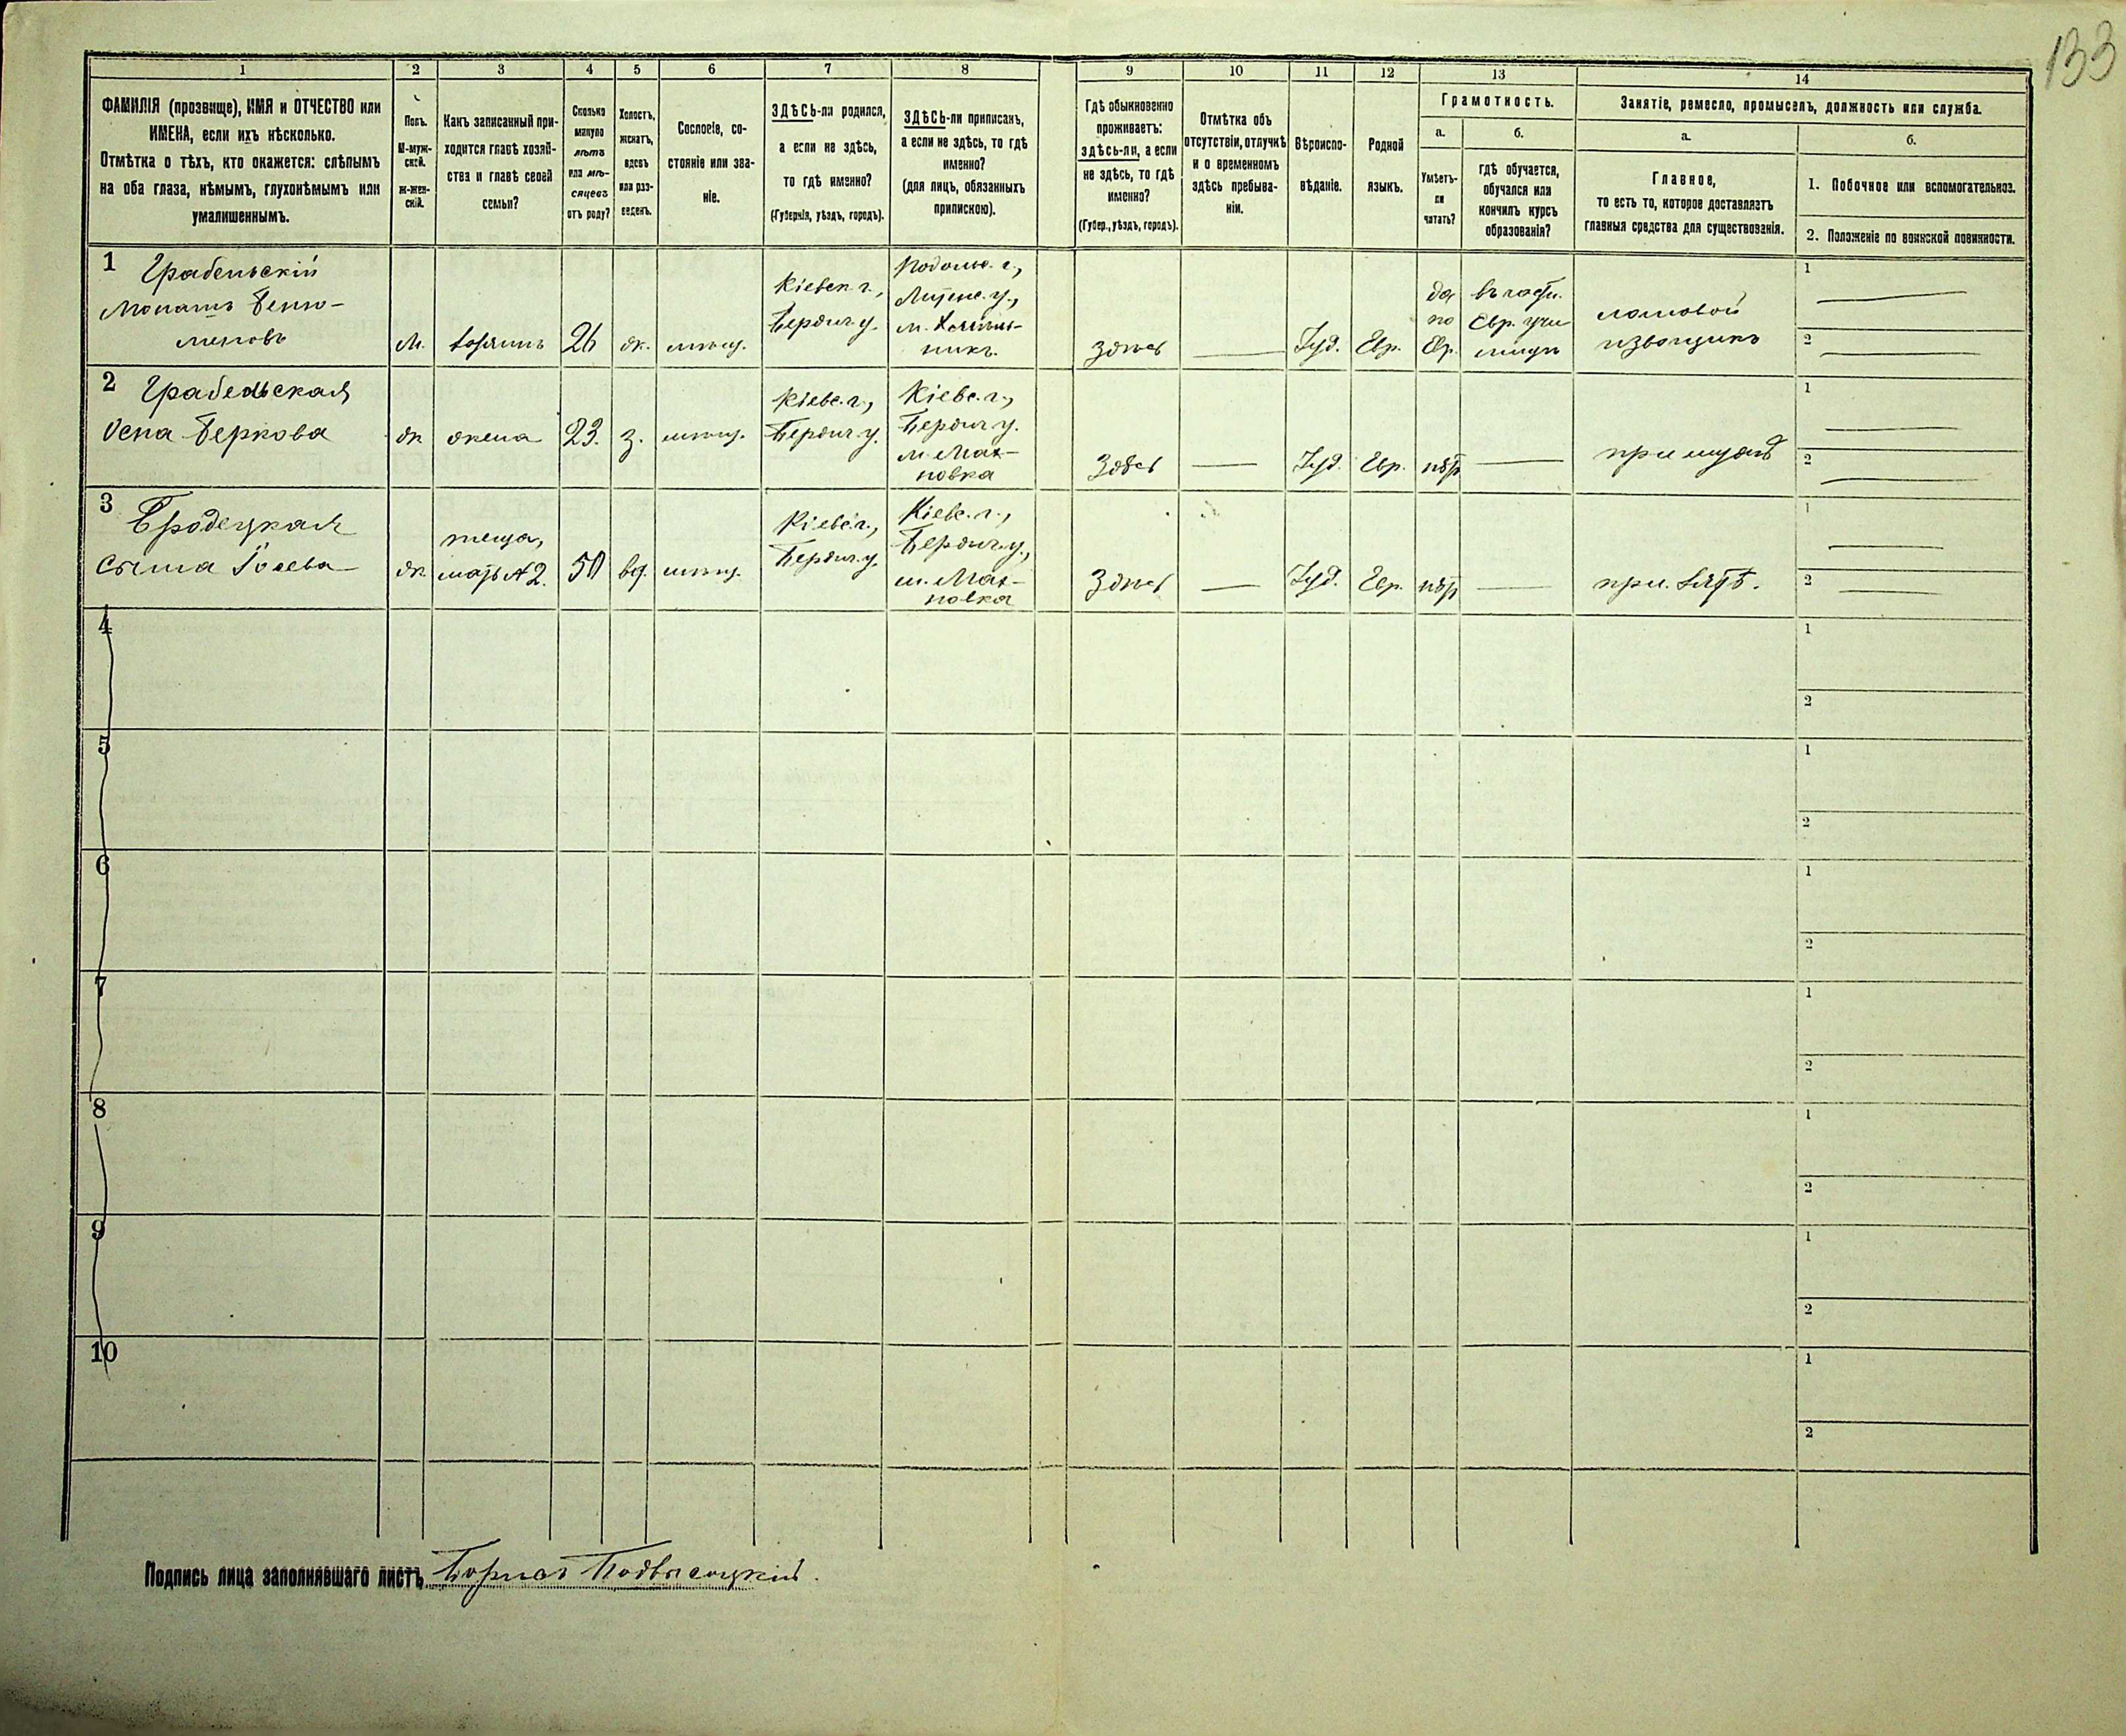 133
1 2 3 4 5 6 7 8 9 10 11 12 13 14
ФАМИЛІЯ (прозвище), ИМЯ и ОТЧЕСТВО или
ИМЕНА, если ихъ нѣсколько.
Отмѣтка о тѣхъ, кто окажется: слѣпымъ
на оба глаза, нѣмымъ, глухонѣмымъ или
умалишеннымъ.
Полъ.
М-муж-
ской.
Ж-жен-
скій.
Какъ записанный при-
ходится главѣ хозяй-
ства и главѣ своей
семьи?
Сколько
минуло
лѣтъ
или мѣ-
сяцевъ
отъ роду?
Холостъ,
женатъ,
вдовъ
или раз-
веденъ.
Сословіе, со-
стояніе или зва-
ніе.
ЗДѢСЬ-ли родился,
а если не здѣсь,
то гдѣ именно?
(Губернія, уѣздъ, городъ).
ЗДѢСЬ-ли приписанъ,
а если не здѣсь, то гдѣ
именно?
(для лицъ, обязанныхъ
припискою).
Гдѣ обыкновенно
проживаетъ:
здѣсь-ли, а если
не здѣсь, то гдѣ
именно?
(Губер., уѣздъ, городъ).
Отмѣтка объ
отсутствіи, отлучкѣ
и о временномъ
здѣсь пребыва-
ніи.
Вѣроиспо-
вѣданіе.
Родной
языкъ.
Грамотность.
а.
Умѣетъ-
ли
читать?
б.
гдѣ обучается,
обучался или
кончилъ курсъ
образованія?
Занятіе, ремесло, промыселъ, должность или служба.
а.
Главное,
то есть то, которое доставляетъ
главныя средства для существованія.
б.
1. Побочное или вспомогательное.
2. Положеніе по воинской повинности.
1 Грабельскій
м.
хозяинъ
26
ж.
мѣщ.
Кіевск. г.,
Бердич. у.
Подольс. г.,
Здѣсь
Іуд.
Евр.
да
по
Евр.
въ части.
Евр. учи
лищѣ
ломовой
извощикъ
1
2
2 Грабельская
Беркова
ж
жена
23.
з.
мѣщ.
Кіевс. г.,
Бердич. у.
Кіевс. г.,
Бердич. у.
м. Мах-
новка
Здѣсь
Іуд.
Евр.
нѣтъ
при мужѣ
1
2
3 Бродецкая
ж.
теща,
мать № 2.
50
вд.
мѣщ.
Кіевс. г.,
Бердич. у.
Кіевс. г.,
Бердич. у.,
м. Мах-
новка
Здѣсь
Іуд.
Евр.
нѣтъ
при зятѣ.
1
2
4
1
2
5
1
2
6
1
2
7
1
2
8
1
2
9
1
2
10
1
2
Подпись лица заполнявшаго листъ Борисъ Подвысоцкій.